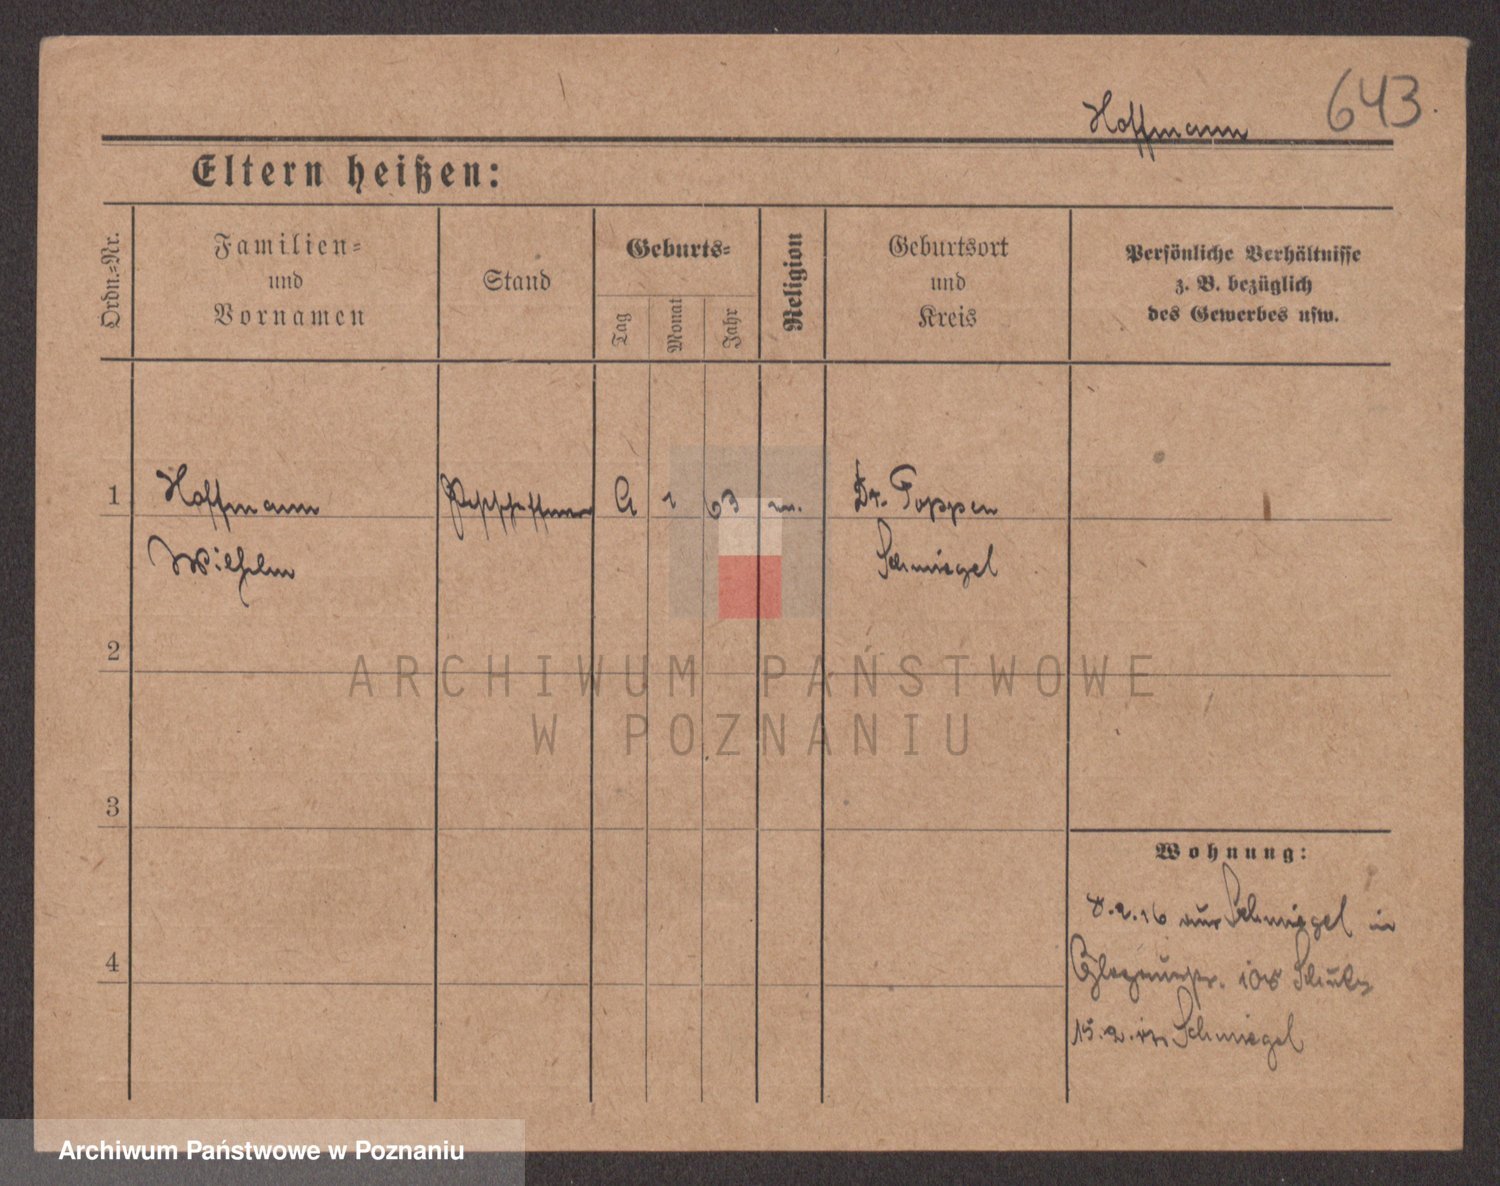 Hoffmann 643.
Eltern heißen:
Ordn.=Nr.
Familien=
und
Vornamen
Stand
Geburts=
Tag
Monat
Jahr
Religion
Geburtsort
und
Kreis
Persönliche Verhältnisse
z. B. bezüglich
des Gewerbes usw.
1 Hoffmann 1 63 Dt. Poppen
Wilhelm Schmiegel
2
ARCHIWUM PAŃSTWOWE
W POZNANIU
3
Wohnung:
8.2.16 aus Schmiegel in
Schulz
4
15.2. in Schmiegel
Archiwum Państwowe w Poznaniu